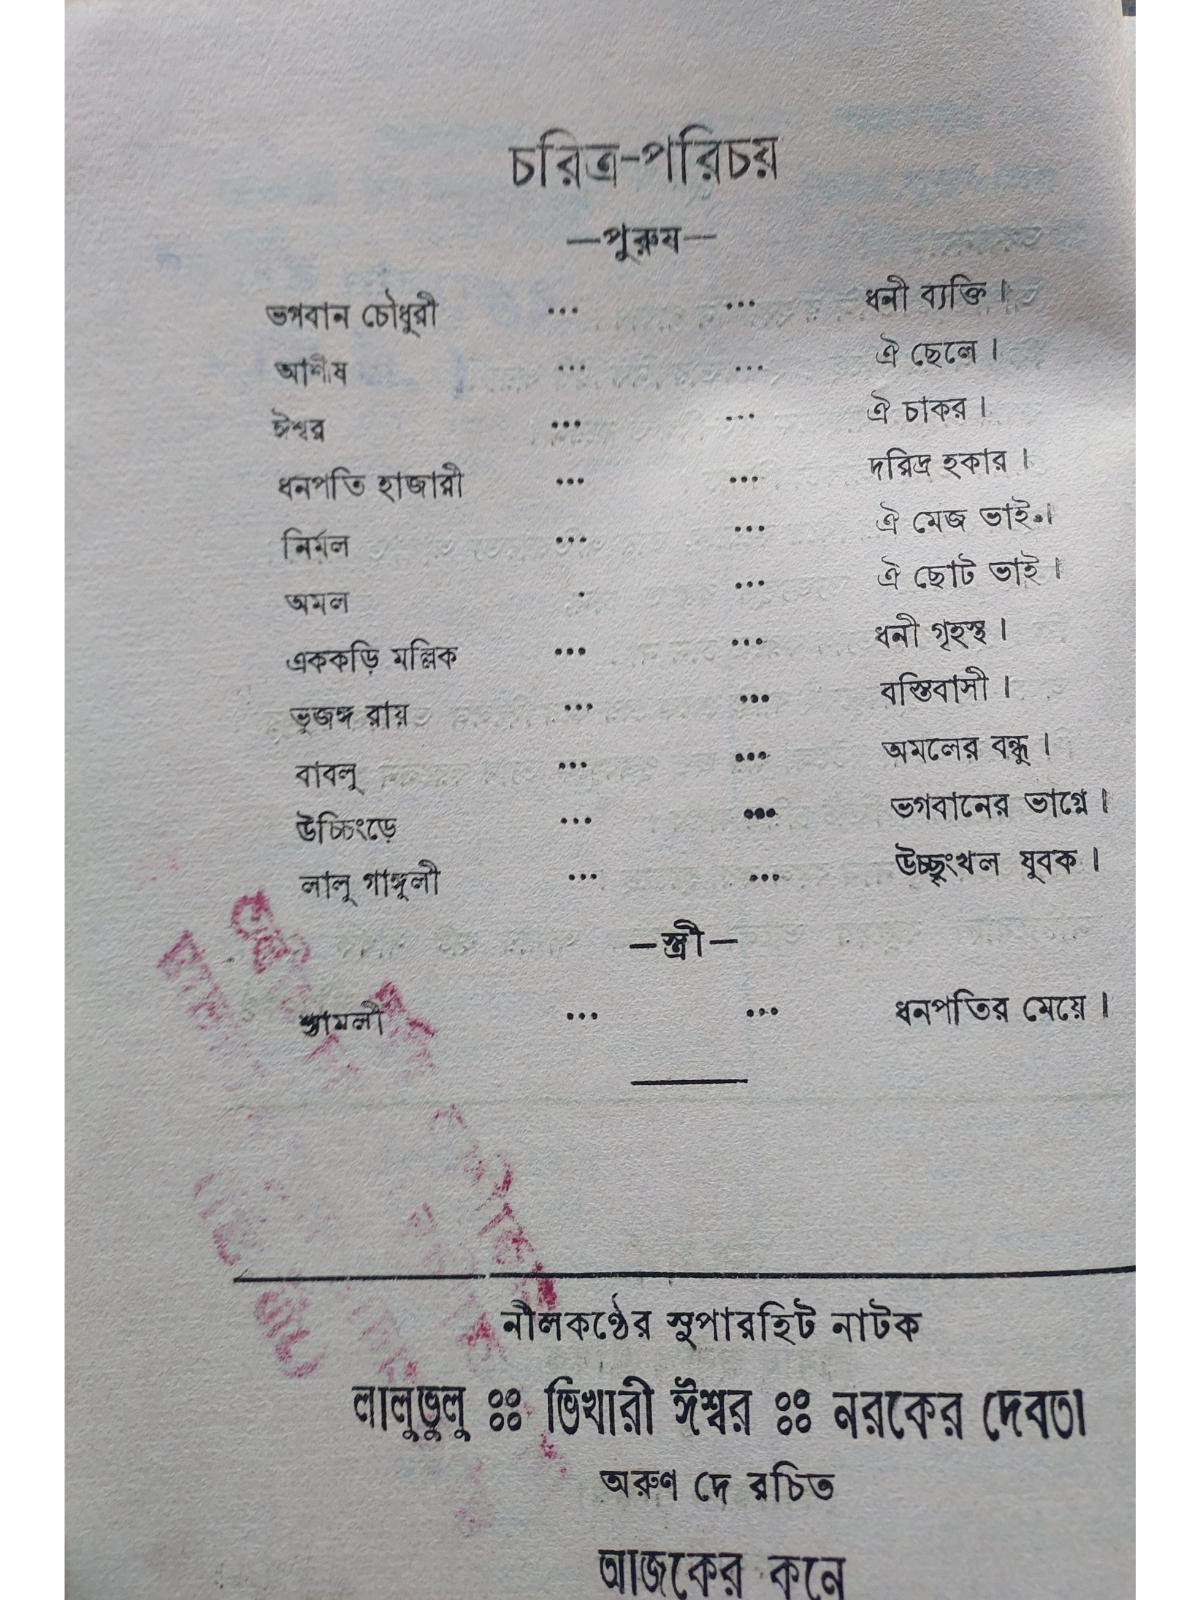 চরিত্র-পরিচয়
—পুরুষ—
ভগবান চৌধুরী ... ... ধনী ব্যক্তি।
আশীষ ... ... ঐ ছেলে।
ঈশ্বর ... ... ঐ চাকর।
ধনপতি হাজারী ... ... দরিদ্র হকার।
নির্মল ... ... ঐ মেজ ভাই।
অমল . ... ঐ ছোট ভাই।
এককড়ি মল্লিক ... ... ধনী গৃহস্থ।
ভুজঙ্গ রায় ... ... বস্তিবাসী।
বাবলু ... ... অমলের বন্ধু।
উচ্চিংড়ে ... ... ভগবানের ভাগ্নে।
লালু গাঙ্গুলী ... ... উচ্ছৃংখল যুবক।
—স্ত্রী—
শ্যামলী ... ... ধনপতির মেয়ে।
নীলকণ্ঠের সুপারহিট নাটক
লালুভুলু ঃঃ ভিখারী ঈশ্বর ঃঃ নরকের দেবতা
অরুণ দে রচিত
আজকের কনে